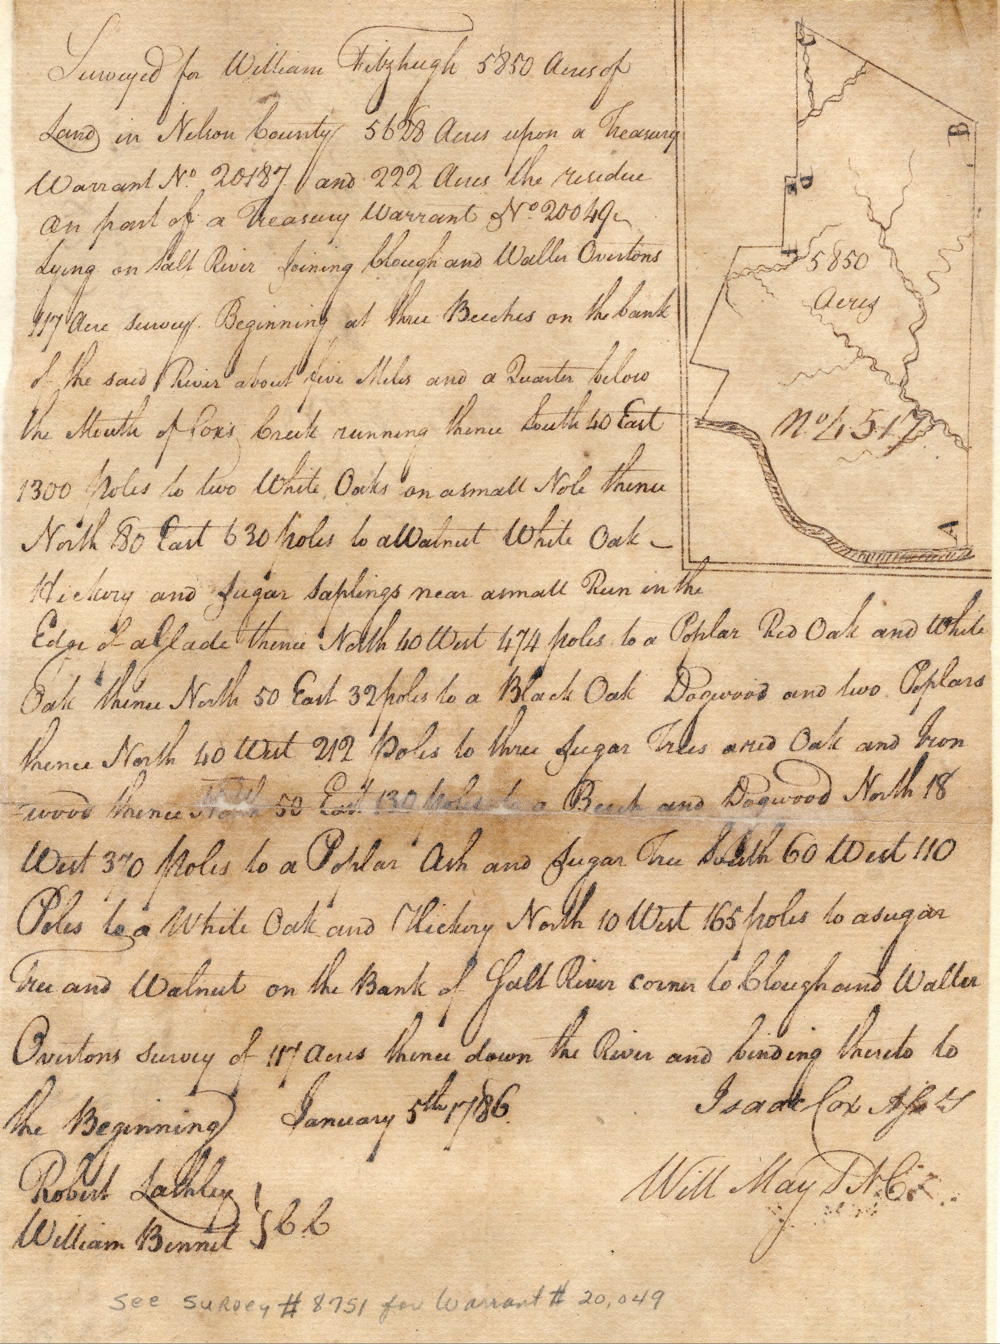 Surveyed for William Fitzhugh 5850 Acres of
Land in Nelson County 5628 Acres upon a Treasury
Warrant No. 20187 and 222 Acres the residue
on part of a Treasury Warrant No 20049
Lying on Salt River Joining Clough and Waller Overtons
117 Acre survey. Beginning at three Beeches on the bank
of the said River about five Miles and a Quarter below
the Mouth of Cox's Creek running thence South 40 East
1300 poles to two White Oaks on a small Nole thence
North 80 East 630 poles to a Walnut White Oak
Hickory and sugar saplings near a small Run in the
Edge of a Glade thence North 40 West 474 poles to a Poplar Red Oak and White
Oak thence North 50 East 32 poles to a Black Oak Dogwood and two Poplars
thence North 40 West 212 poles to three Sugar Trees a red Oak and Iron
-wood thence 50 East 130 poles to a Beech and Dogwood North 18
West 370 poles to a Poplar Ash and Sugar Tree South 60 West 110
Poles to a White Oak and Hickory North 10 West 165 poles to a sugar
Tree and Walnut on the Bank of Salt River corner to Clough and Waller
Overtons survey of 117 Acres thence down the River and binding thereto to
the Beginning January 5th 1786.
Isaac Cox Asst
Will May S N C
Robert Lashley
William Bennet } C C
See survey # 8751 for warrant # 20,049
B
D
5850
Acres
No 4517
A